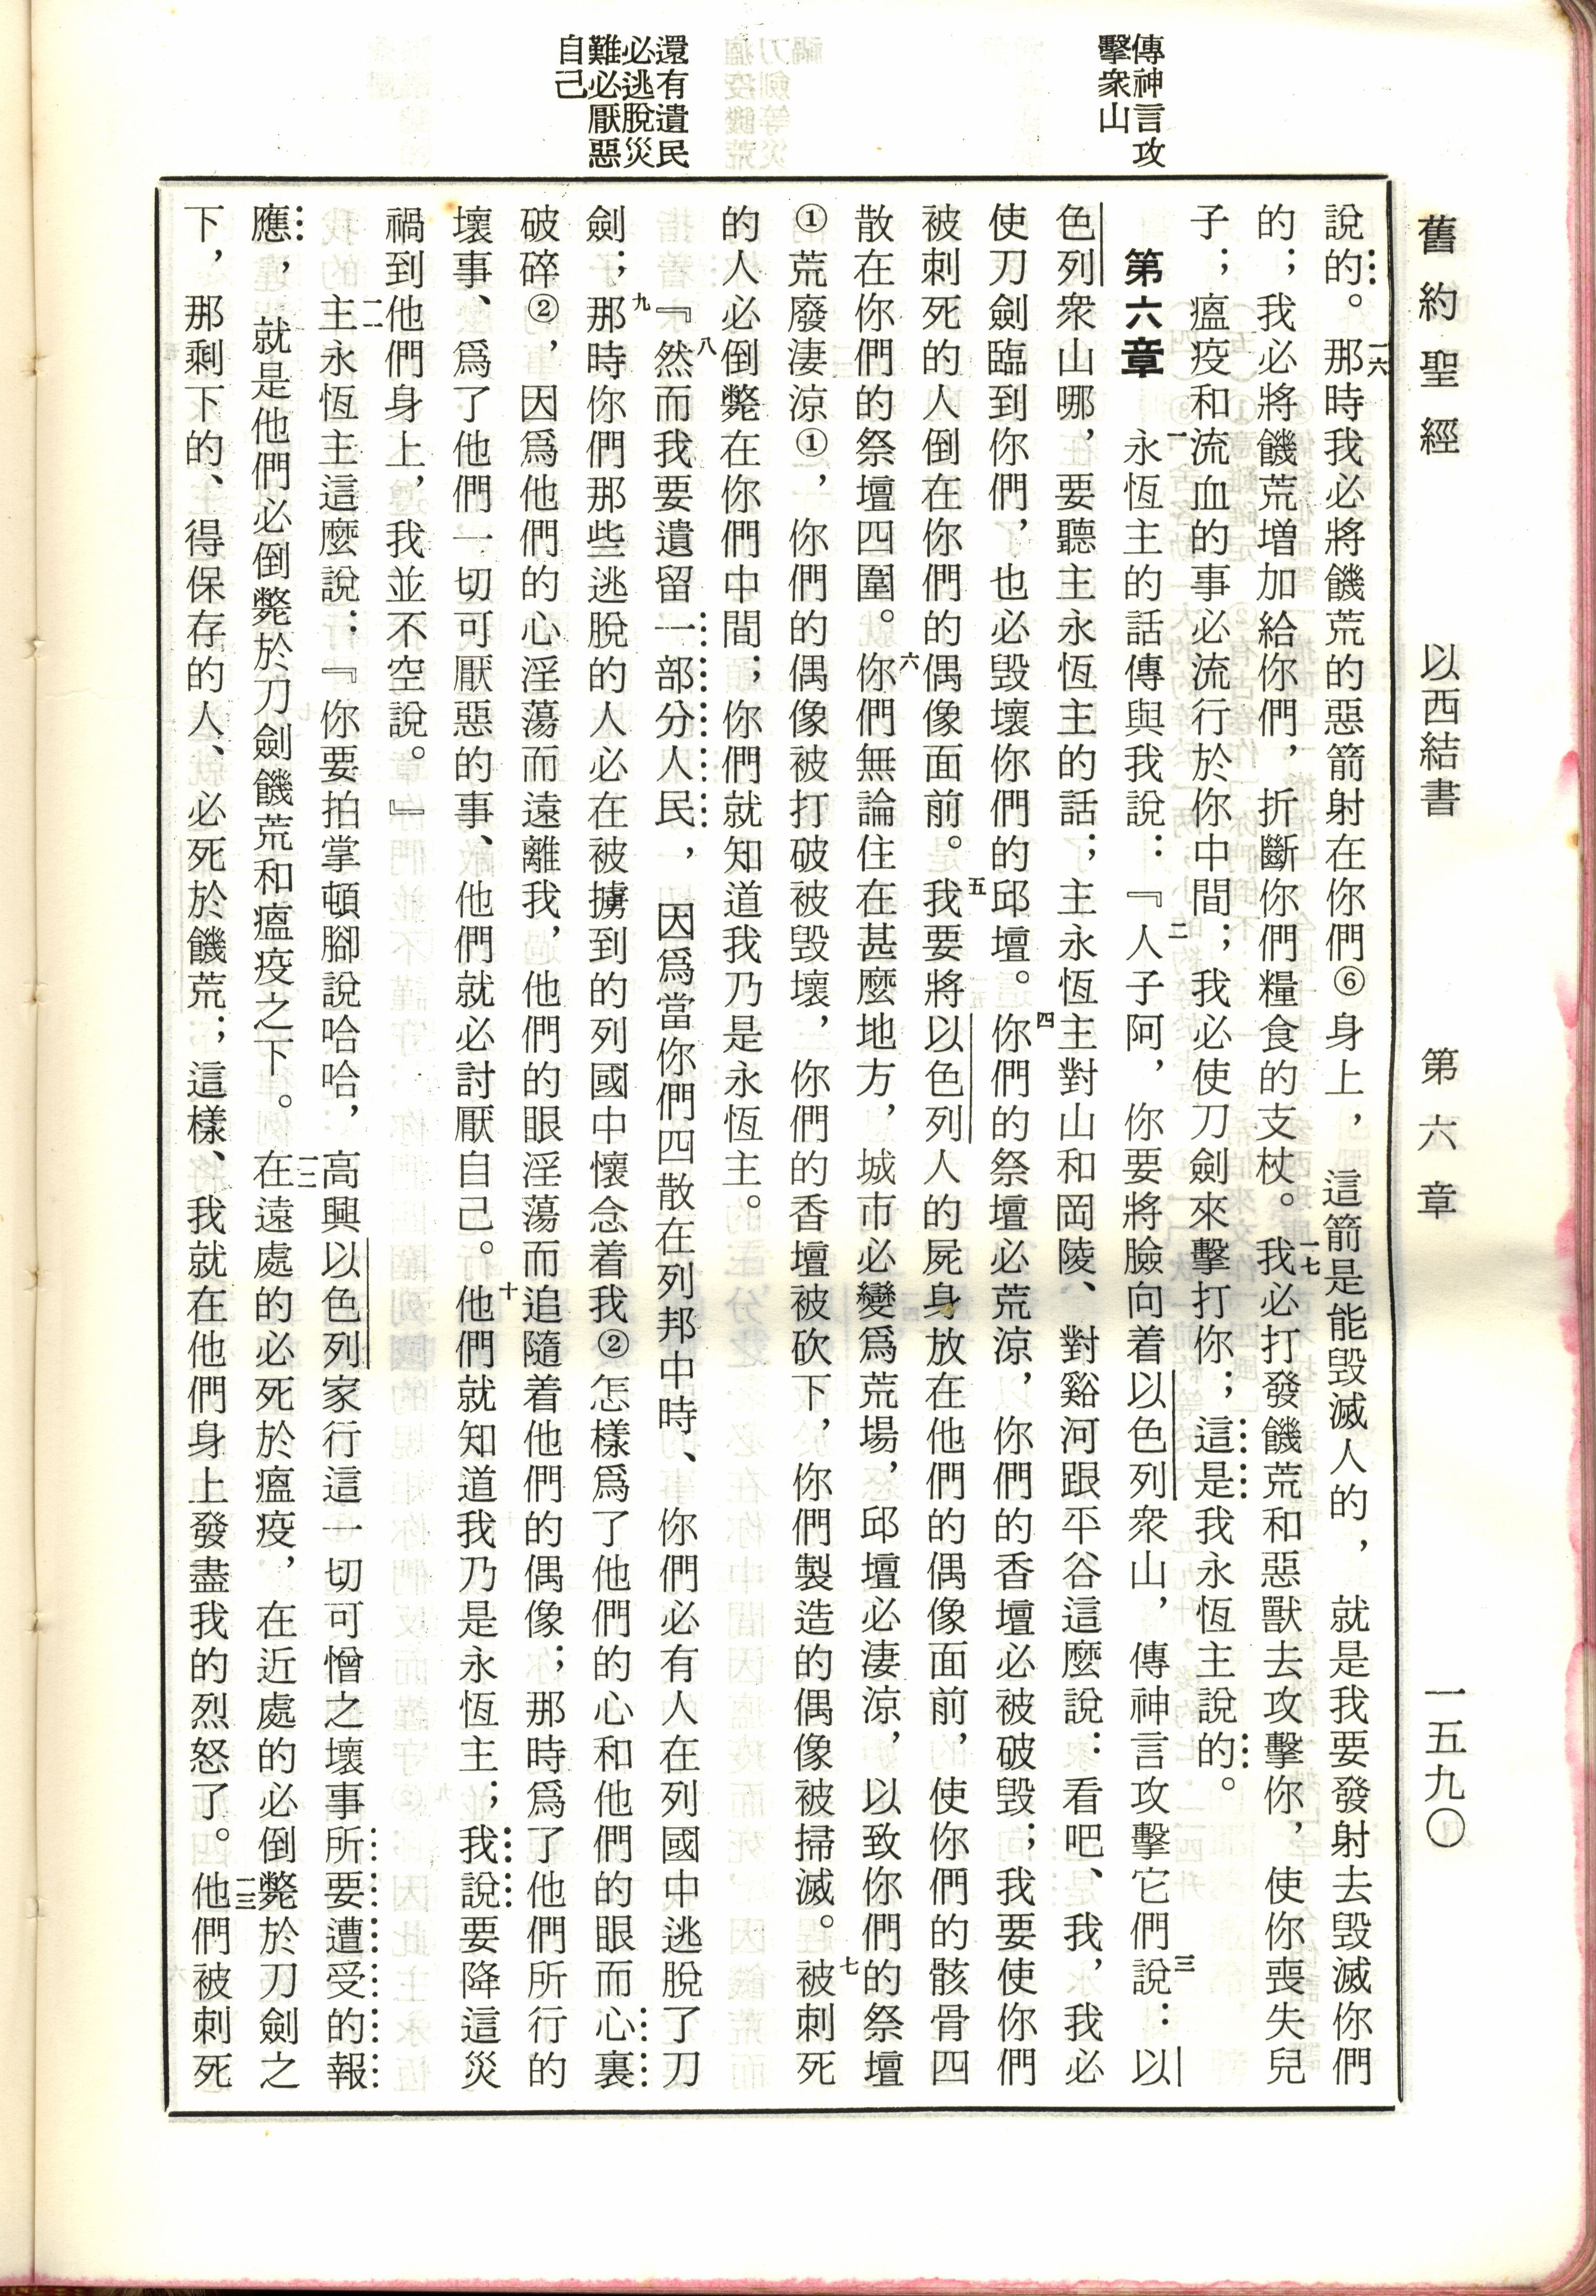 舊約聖經　以西結書　第六章　一五九〇
傳神言攻
擊衆山
還有遺民
必逃脫災
難必厭惡
自己
說的。一六那時我必將饑荒的惡箭射在你們⑥身上，這箭是能毀滅人的，就是我要發射去毀滅你們
的；我必將饑荒增加給你們，折斷你們糧食的支杖。一七我必打發饑荒和惡獸去攻擊你，使你喪失兒
子；瘟疫和流血的事必流行於你中間；我必使刀劍來擊打你；這是我永恆主說的。
第六章　一永恆主的話傳與我說：二『人子阿，你要將臉向着以色列衆山，傳神言攻擊它們三說：以
色列衆山哪，要聽主永恆主的話；主永恆主對山和岡陵、對谿河跟平谷這麼說：看吧、我，我必
使刀劍臨到你們，也必毀壞你們的邱壇。四你們的祭壇必荒涼，你們的香壇必被破毀；我要使你們
被刺死的人倒在你們的偶像面前。五我要將以色列人的屍身放在他們的偶像面前，使你們的骸骨四
散在你們的祭壇四圍。六你們無論住在甚麼地方，城市必變爲荒場，邱壇必淒涼，以致你們的祭壇
①荒廢淒涼①，你們的偶像被打破被毀壞，你們的香壇被砍下，你們製造的偶像被掃滅。七被刺死
的人必倒斃在你們中間；你們就知道我乃是永恆主。
八『然而我要遺留一部分人民，因爲當你們四散在列邦中時、你們必有人在列國中逃脫了刀
劍；九那時你們那些逃脫的人必在被擄到的列國中懷念着我②怎樣爲了他們的心和他們的眼而心裏
破碎②，因爲他們的心淫蕩而遠離我，他們的眼淫蕩而追隨着他們的偶像；那時爲了他們所行的
壞事、爲了他們一切可厭惡的事、他們就必討厭自己。十他們就知道我乃是永恆主；我說要降這災
禍到他們身上，我並不空說。』
一一主永恆主這麼說：『你要拍掌頓腳說哈哈，高興以色列家行這一切可憎之壞事所要遭受的報
應，就是他們必倒斃於刀劍饑荒和瘟疫之下。一二在遠處的必死於瘟疫，在近處的必倒斃於刀劍之
下，那剩下的、得保存的人、必死於饑荒；這樣、我就在他們身上發盡我的烈怒了。一三他們被刺死